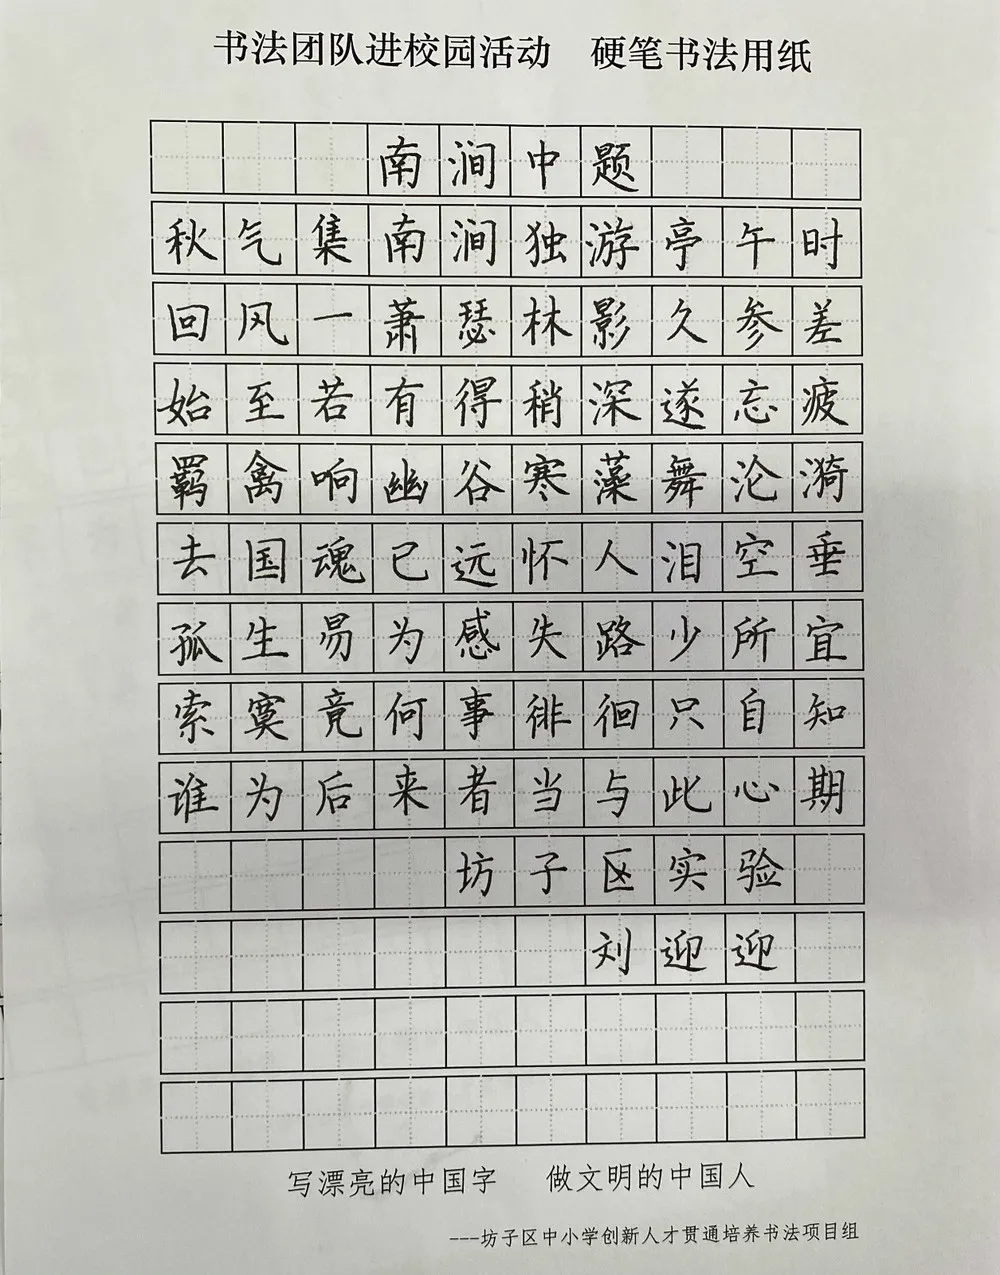 书法团队进校园活动 硬笔书法用纸
南涧中题
秋气集南涧独游亭午时
回风一萧瑟林影久参差
始至若有得稍深遂忘疲
羁禽响幽谷寒藻舞沦漪
去国魂已远怀人泪空垂
孤生易为感失路少所宜
索寞竟何事徘徊只自知
谁为后来者当与此心期
坊子区实验
刘迎迎
写漂亮的中国字 做文明的中国人
---坊子区中小学创新人才贯通培养书法项目组